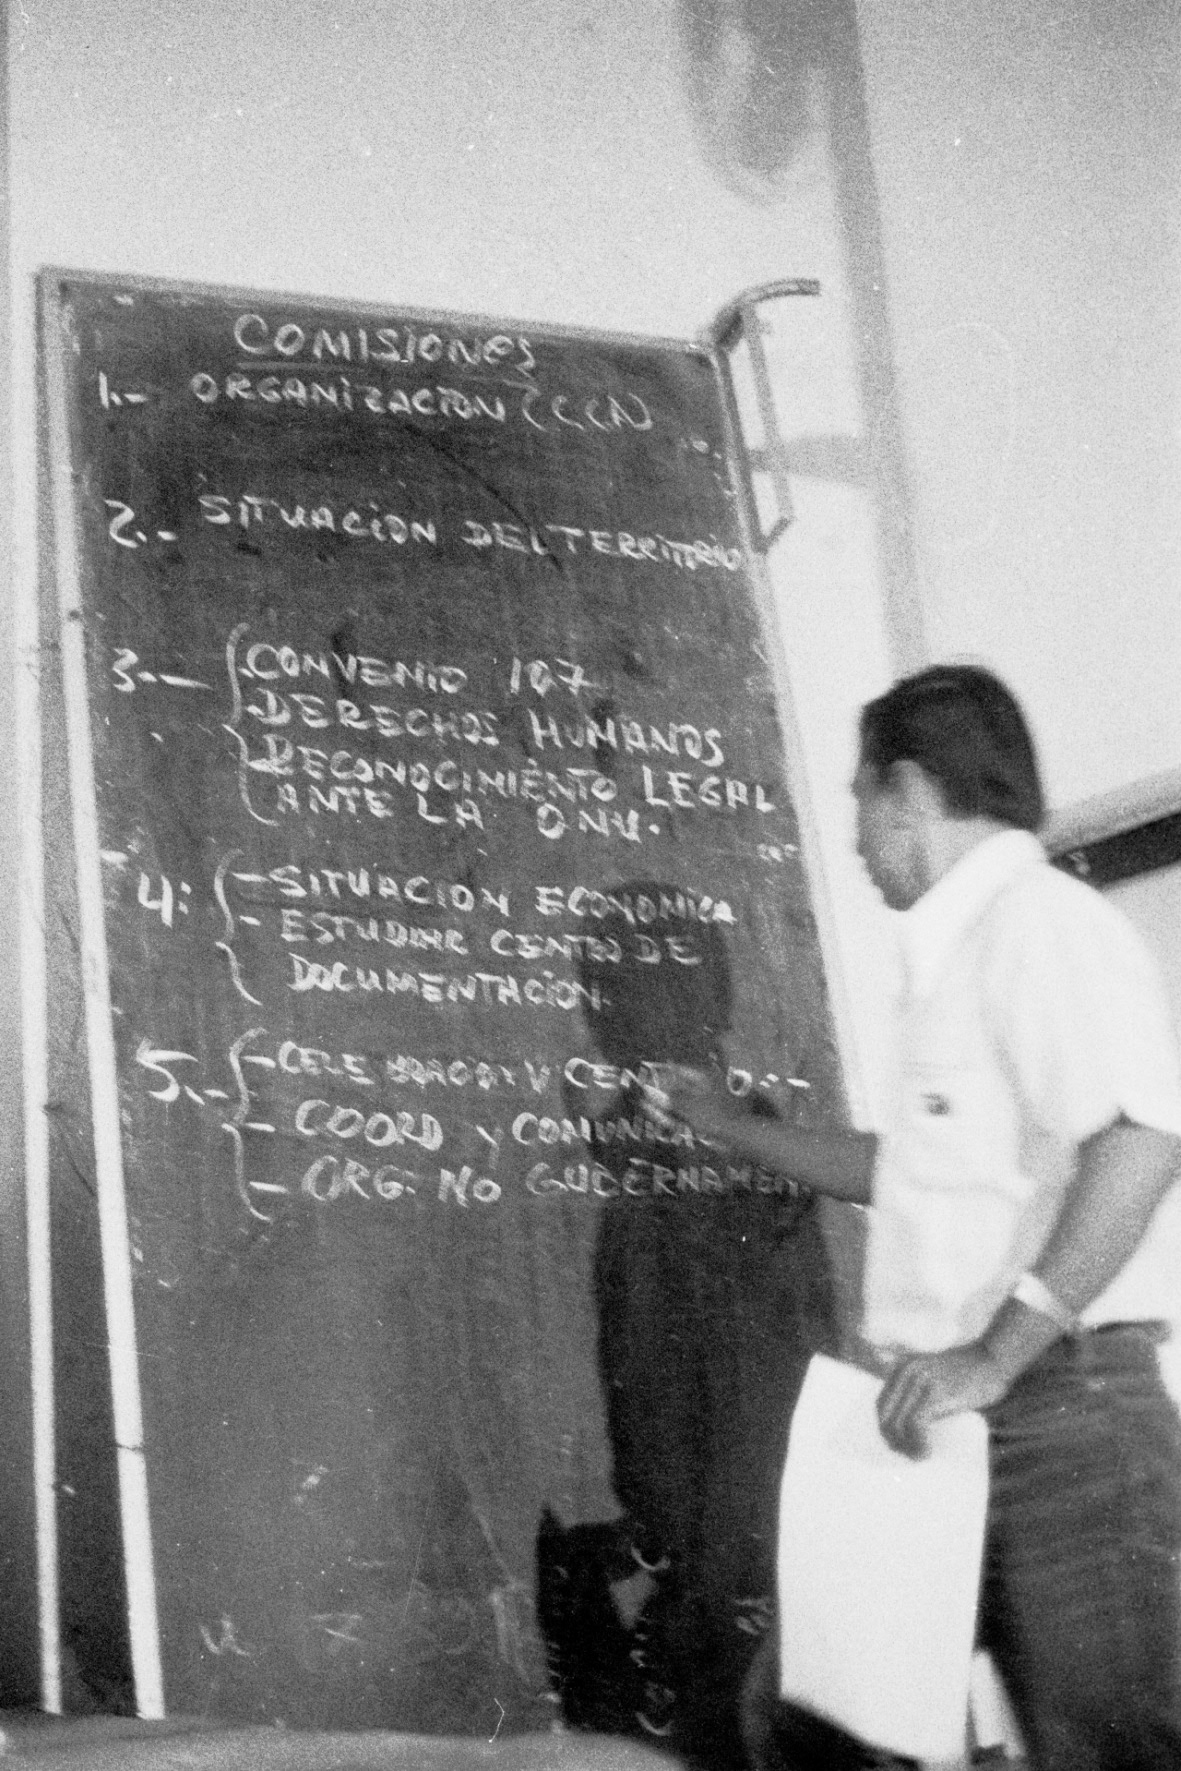 COMISIONES
1.- ORGANIZACION (CCA)
2.- SITUACION DEL TERRITORIO
3.- CONVENIO 107
- DERECHOS HUMANOS
- RECONOCIMIENTO LEGAL
ANTE LA ONU.
4: - SITUACION ECONOMICA
- ESTUDIAR CENTRO DE
DOCUMENTACION.
5.- - V CENT
- COORD Y COMUNICA
- ORG. NO GUBERNAMEN